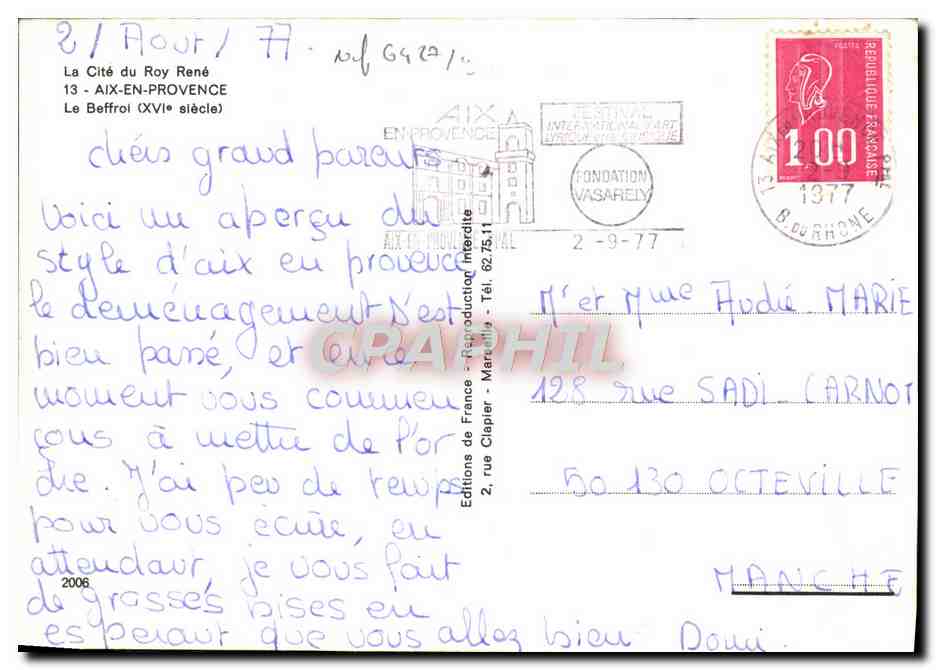 2/Aout/77.
La Cité du Roy René
13 - AIX-EN-PROVENCE
Le Beffroi (XVIe siècle)
chers grand parents
Voici un aperçu du
style d'aix en provence,
le deménagement s'est
bien passé, et en ce
moment nous commen
çons à mettre de l'or
dre. J'ai peu de temps
pour vous écrire, en
attendant, je vous fait
de grosses bises en
esperant que vous allez bien Domi.
2006
Editions de France - Reproduction interdite
2, rue Clapier - Marseille - Tél. 62.75.11
AIX
EN-PROVENCE
FESTIVAL
INTERNATIONAL D'ART
LYRIQUE ET DE MUSIQUE
FONDATION
VASARELY
AIX-EN-PROVENCE PPAL
2 -9-77
13 AIX
2 -9
1977
B. DU RHONE
POSTES
REPUBLIQUE FRANÇAISE
1,00
Mr et Mme André MARIE
128 rue SADI-CARNOT
50130 OCTEVILLE
MANCHE
CPAPHIL